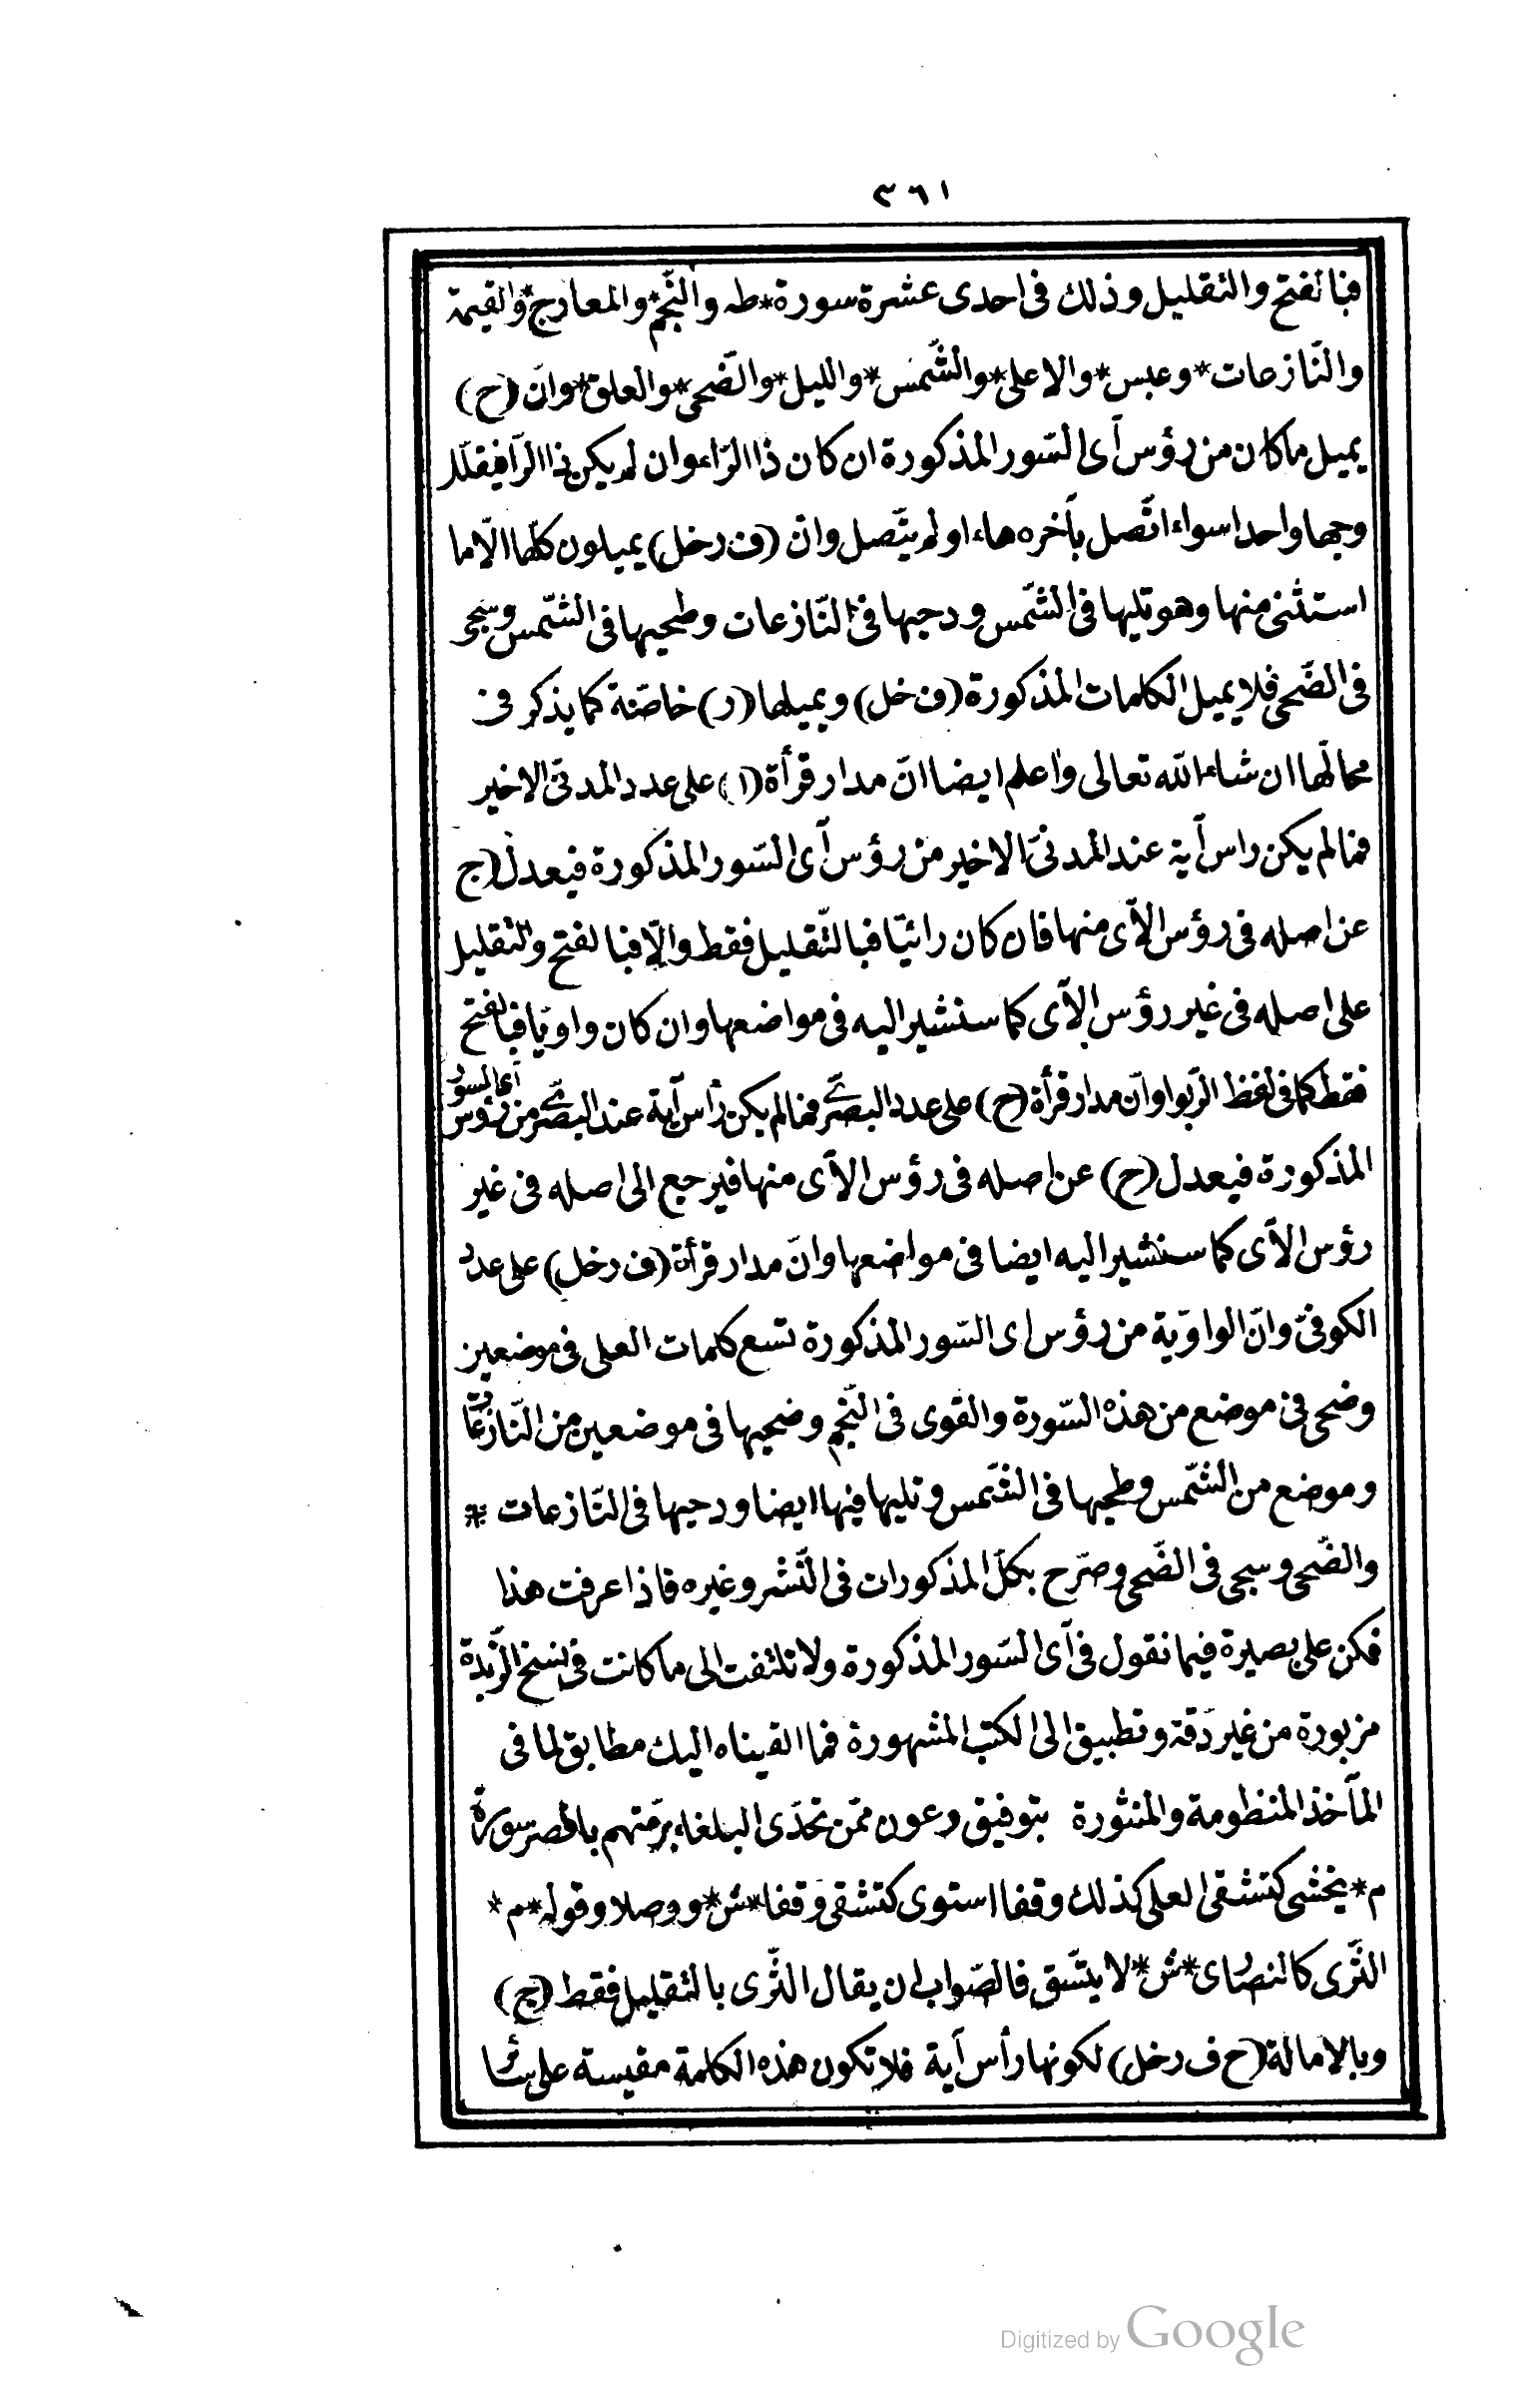 ٣٦١
فبالفتح والتقليل وذلك فى احدى عشرة سورة * طه والنّجم * والمعارج * والقيمة
والنّازعات * وعبس * والاعلى * والشّمس * والليل * والضّحى * والعلق * وانّ (ح)
يميل ماكان من رؤس آى السّور المذكورة ان كان ذا الرّاء وان لم يكن ذا الرّا فيقلّل
وجها واحدا سواء اتّصل بآخره هاء او لم يتّصل وانّ (ف رخل) يميلون كلّها الّا ما
استثنى منها وهو تليها فى الشّمس ودحيها فى النّازعات وطحيها فى الشّمس وسجى
فى الضّحى فلا يميل الكلمات المذكورة (ف خل) ويميلها (ر) خاصّة كما يذكر فى
محالّها ان شاء الله تعالى واعلم ايضا انّ مدار قرأة (ا) على عدد المدنىّ الاخير
فما لم يكن راس آية عند المدنىّ الاخير من رؤس آى السّور المذكورة فيعدل (ج
عن اصله فى رؤس الآى منها فان كان رائيّا فبالتّقليل فقط والّا فبالفتح والتقليل
على اصله فى غير رؤس الآى كما سنشير اليه فى مواضعها وان كان واويّا فبالفتح
فقط كما فى لفظ الرّبوا وانّ مدار قرأة (ح) على عدد البصرىّ فما لم يكن رأس آية عند البصرىّ من رؤس آى السور
المذكورة فيعدل (ح) عن اصله فى رؤس الآى منها فيرجع الى اصله فى غير
رؤس الآى كما سنشير اليه ايضا فى مواضعها وانّ مدار قرأة (ف رخل) على عدد
الكوفىّ وانّ الواويّة من رؤس اى السّور المذكورة تسع كلمات العلى فى موضعين
وضحى فى موضع من هذه السّورة والقوى فى النّجم وضحيها فى موضعين من النّازعات
وموضع من الشّمس وطحيها فى الشّمس وتليها فيها ايضا ودحيها فى النّازعات *
والضّحى وسجى فى الضّحى وصرّح بكلّ المذكورات فى النّشر وغيره فاذا عرفت هذا
فكن على بصيرة فيما نقول فى آى السّور المذكورة ولا تلتفت الى ما كانت فى نسخ الزّبدة
مزبورة من غير دقّة وتطبيق الى الكتب المشهورة فما القيناه اليك مطابق لما فى
المآخذ المنظومة والمنثورة بتوفيق وعون ممّن تحدّى البلغاء برمّتهم باقصر سورة
م * يخشى كتشقى العلى كذلك وقفا استوى كتشقى وقفا * ش * ووصلا وقوله * م *
الثّرى كالنصارى * ش * لا يتّسق فالصّواب ان يقال الثّرى بالتقليل فقط (ج)
وبالامالة (ح ف رخل) لكونها رأس آية فلا تكون هذه الكلمة مقيسة على سائر
Digitized by Google